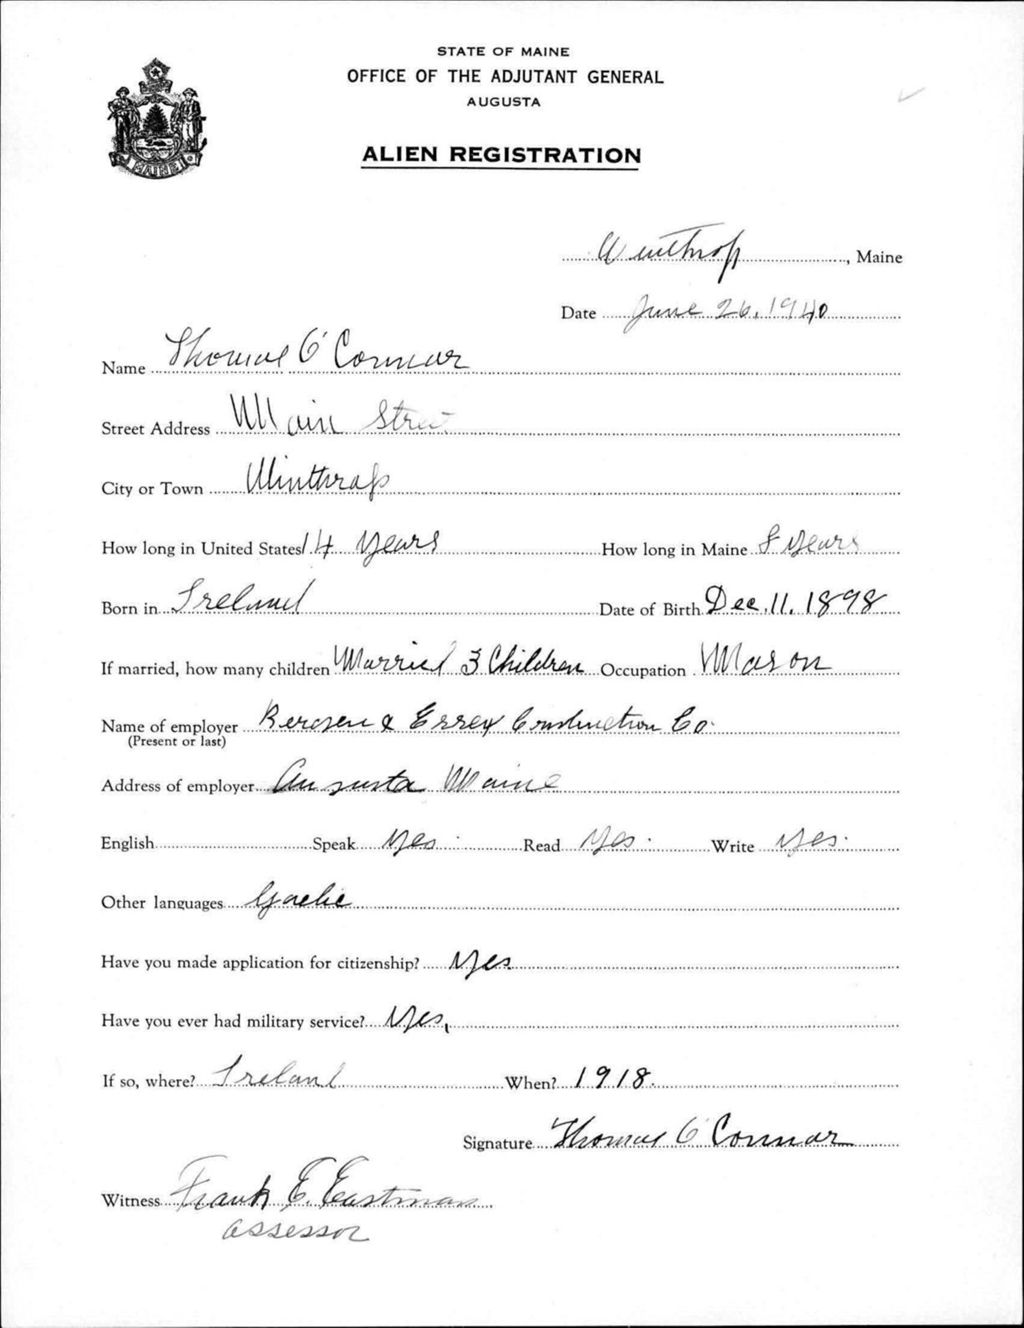 STATE OF MAINE
OFFICE OF THE ADJUTANT GENERAL
AUGUSTA
ALIEN REGISTRATION
MAINE
Winthrop, Maine
Date June 26, 1940
Name Thomas O'Connor
Street Address Main Street
City or Town Winthrop
How long in United States 14 years How long in Maine 8 years
Born in Ireland Date of Birth Dec. 11. 1898
If married, how many children Married 3 Children Occupation Mason
Name of employer & Essex Construction Co.
(Present or last)
Address of employer Augusta Maine
English Speak Yes. Read Yes. Write Yes.
Other languages Gaelic
Have you made application for citizenship? Yes
Have you ever had military service? Yes,
If so, where? Ireland When? 1918.
Signature Thomas O'Connor
Witness Frank E. Eastman
assessor